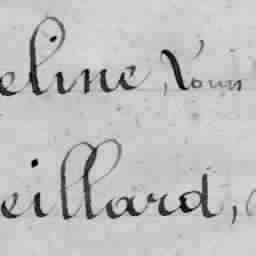 eline, Louis
eillard,